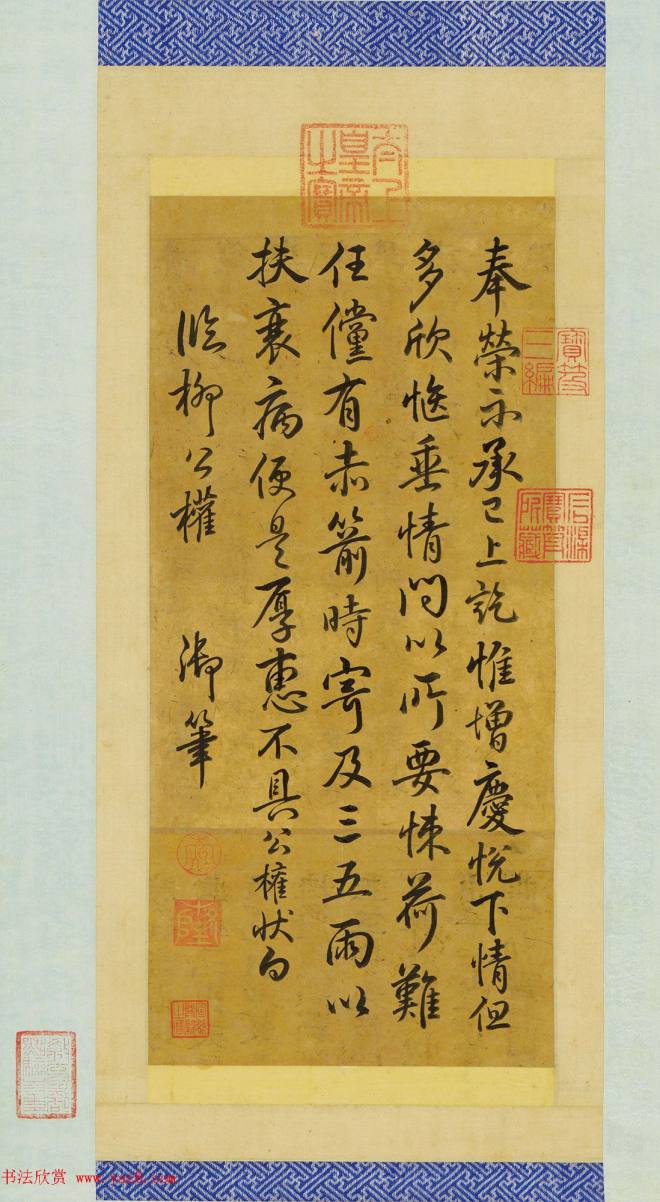 奉榮示承已上訖惟增慶悅下情但
多欣愜垂情問以所要悚荷難
任儻有赤箭時寄及三五兩以
扶衰病便是厚惠不具公權狀白
臨柳公權
御筆
太上
皇帝
之寶
寶笈
三編
石渠
寶笈
所藏
乾
隆
书法欣赏 www.yac8.com